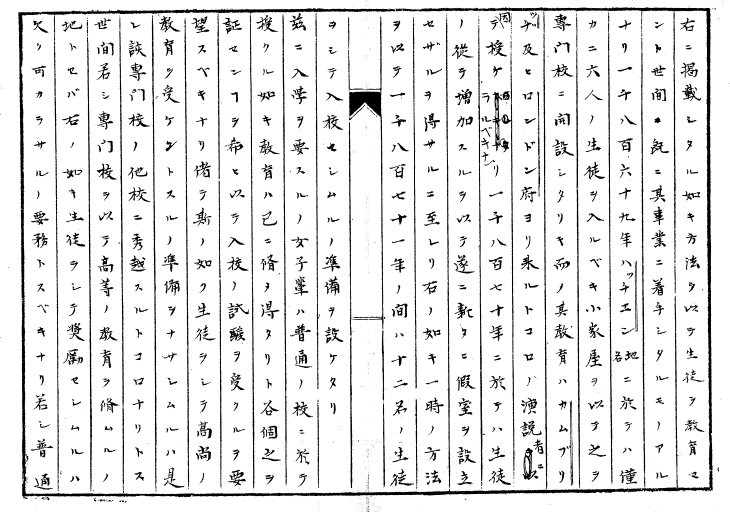 右ニ掲載シタル如キ方法ヲ以テ生徒ヲ教育セ
ント世間ニ既ニ其事業ニ着手シタルモノアル
ナリ一千八百六十九年ハッチエン各地ニ於テハ僅
カニ六人ノ生徒ヲ入ルベキ小家屋ヲ以テ之ヲ
専門校ニ開設シタリキ而ノ其教育ハカムブリ
ッヂ及ヒロンドン府ヨリ来ルトコロノ演説者ニ
因テ授ケラルベキナリ一千八百七十年ニ於テハ生徒
ノ従テ増加スルヲ以テ遂ニ新タニ假室ヲ設立
セザルヲ得サルニ至レリ右ノ如キ一時ノ方法
ヲ以テ一千八百七十一年ノ間ハ十二名ノ生徒
ヲシテ入校セシムルノ準備ヲ設ケタリ
茲ニ入学ヲ要スルノ女子輩ハ普通ノ校ニ於テ
授クル如キ教育ハ已ニ脩メ得タリト各個之ヲ
証センヿヲ布ヒ以テ入校ノ試験ヲ受クルヲ要
望スベキナリ偖テ斯ノ如ク生徒ヲシテ高尚ノ
教育ヲ受ケントスルノ準備ヲナサシムルハ是
レ該専門校ノ他校ニ秀越スルトコロナリトス
世間若シ専門校ヲ以テ高等ノ教育ヲ脩ムルノ
地トセバ右ノ如キ生徒ヲシテ奨励セシムルハ
欠ク可カラサルノ要務トスベキナリ若シ普通